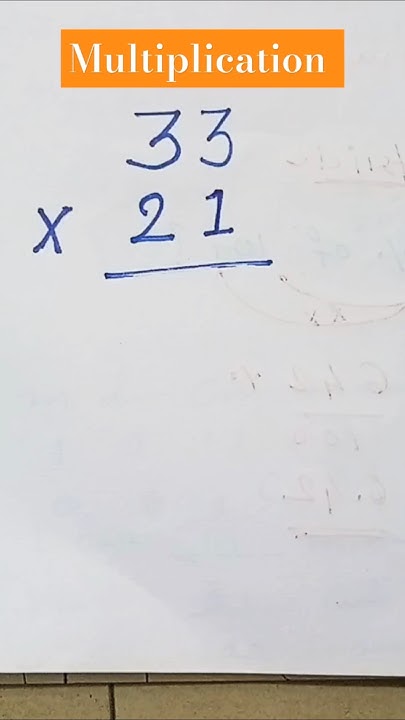 Multiplication
33
x 21